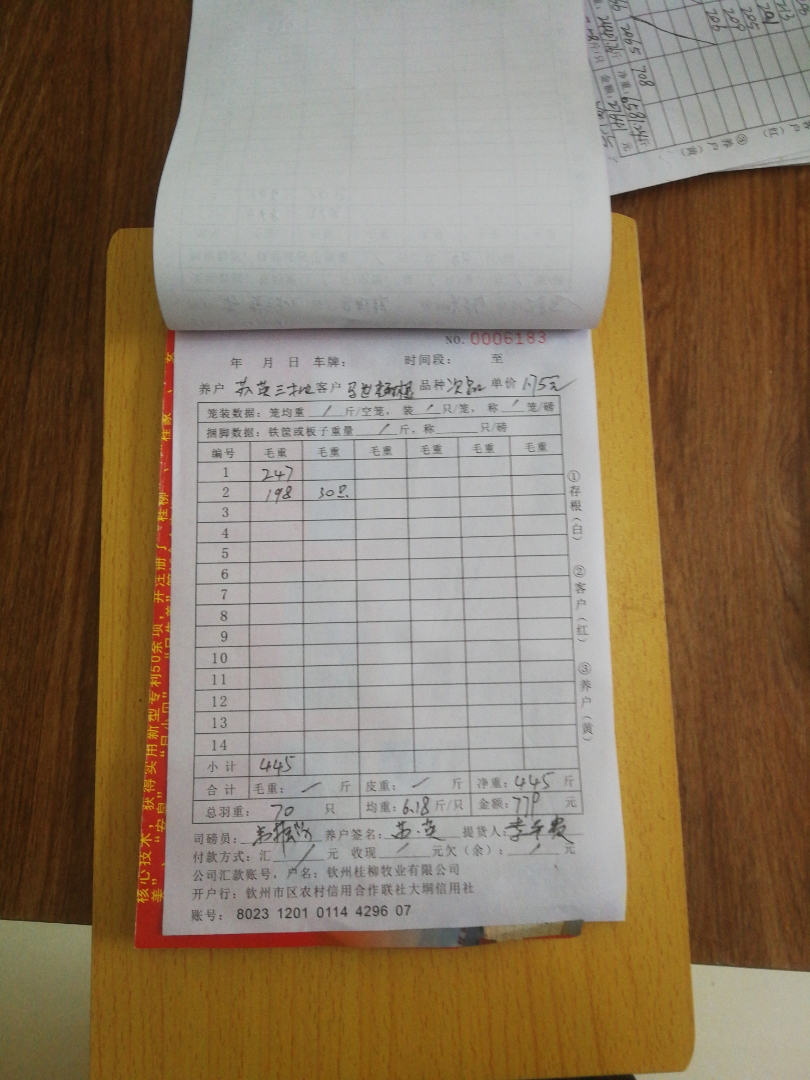 NO. 0006183
年 月 日 车牌： 时间段： 至
养户 苏英三批 客户 品种 次品 单价 1.75元
笼装数据：笼均重 / 斤/空笼，装 / 只/笼，称 / 笼/磅
捆脚数据：铁筐或板子重量 / 斤，称 只/磅
编号 毛重 毛重 毛重 毛重 毛重 毛重
1 247
2 198 30只
3
4
5
6
7
8
9
10
11
12
13
14
小计 445
合计 毛重： / 斤 皮重： / 斤 净重：445 斤
总羽重： 70 只 均重：6.18 斤/只 金额：779 元
司磅员： 养户签名：苏英 提货人：
付款方式：汇 / 元 收现 / 元欠（余）： / 元
公司汇款账号，户名：钦州桂柳牧业有限公司
开户行：钦州市区农村信用合作联社大垌信用社
账号： 8023 1201 0114 4296 07
①存根（白）
②客户（红）
③养户（黄）
核心技术，获得实用新型专利50余项，并注册了“桂柳”、“桂家”、
708
客户（红）
③养户（黄）